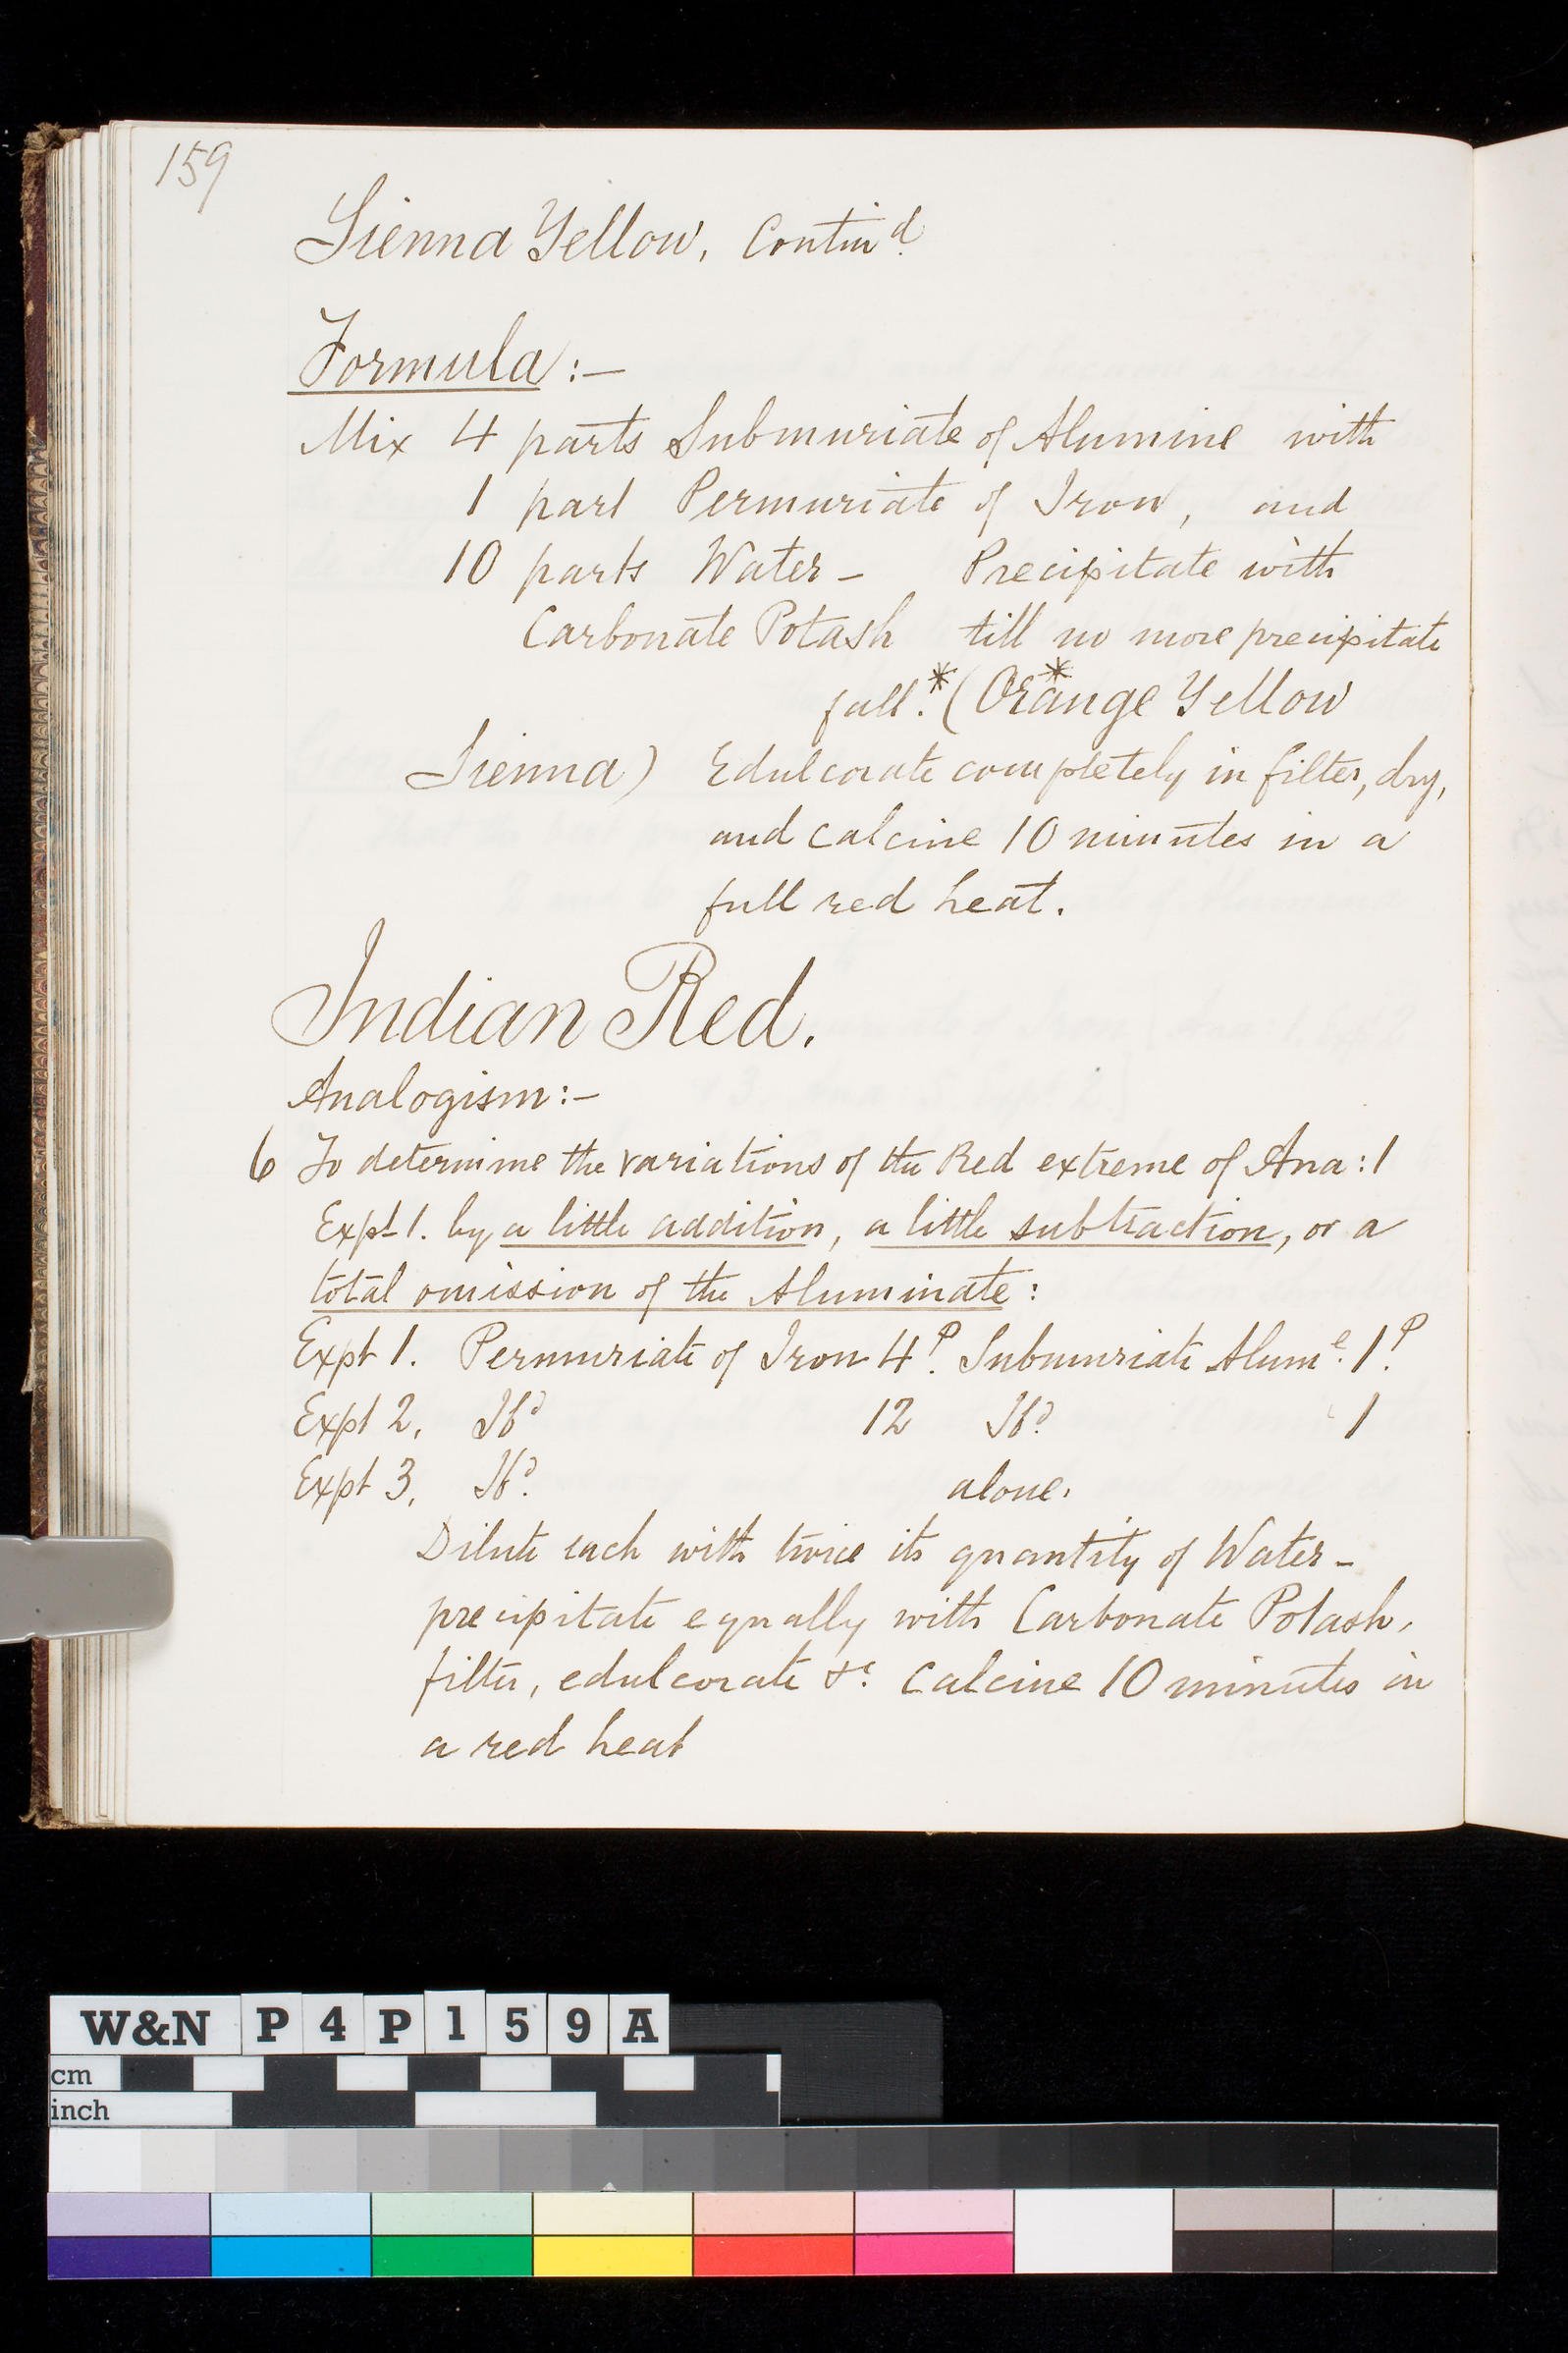 159
Sienna Yellow, Contind.
Formula:—
Mix 4 parts Submuriate of Alumine with
1 part Permuriate of Iron, and
10 parts Water — Precipitate with
Carbonate Potash till no more precipitate
fall.* (Orange* Yellow
Sienna) Edulcorate completely in filter, dry,
and calcine 10 minutes in a
full red heat.
Indian Red.
Analogism:—
6 To determine the variations of the Red extreme of Ana: 1
Expt 1. by a little addition, a little subtraction, or a
total omission of the Aluminate:
Expt 1. Permuriate of Iron 4 P. Submuriate Alume. 1 P.
Expt 2. Ibd 12 Ibd. 1
Expt 3. Ibd. alone.
Dilute each with twice its quantity of Water —
precipitate equally with Carbonate Potash,
filter, edulcorate &c. Calcine 10 minutes in
a red heat
W&N P4P159A
cm
inch